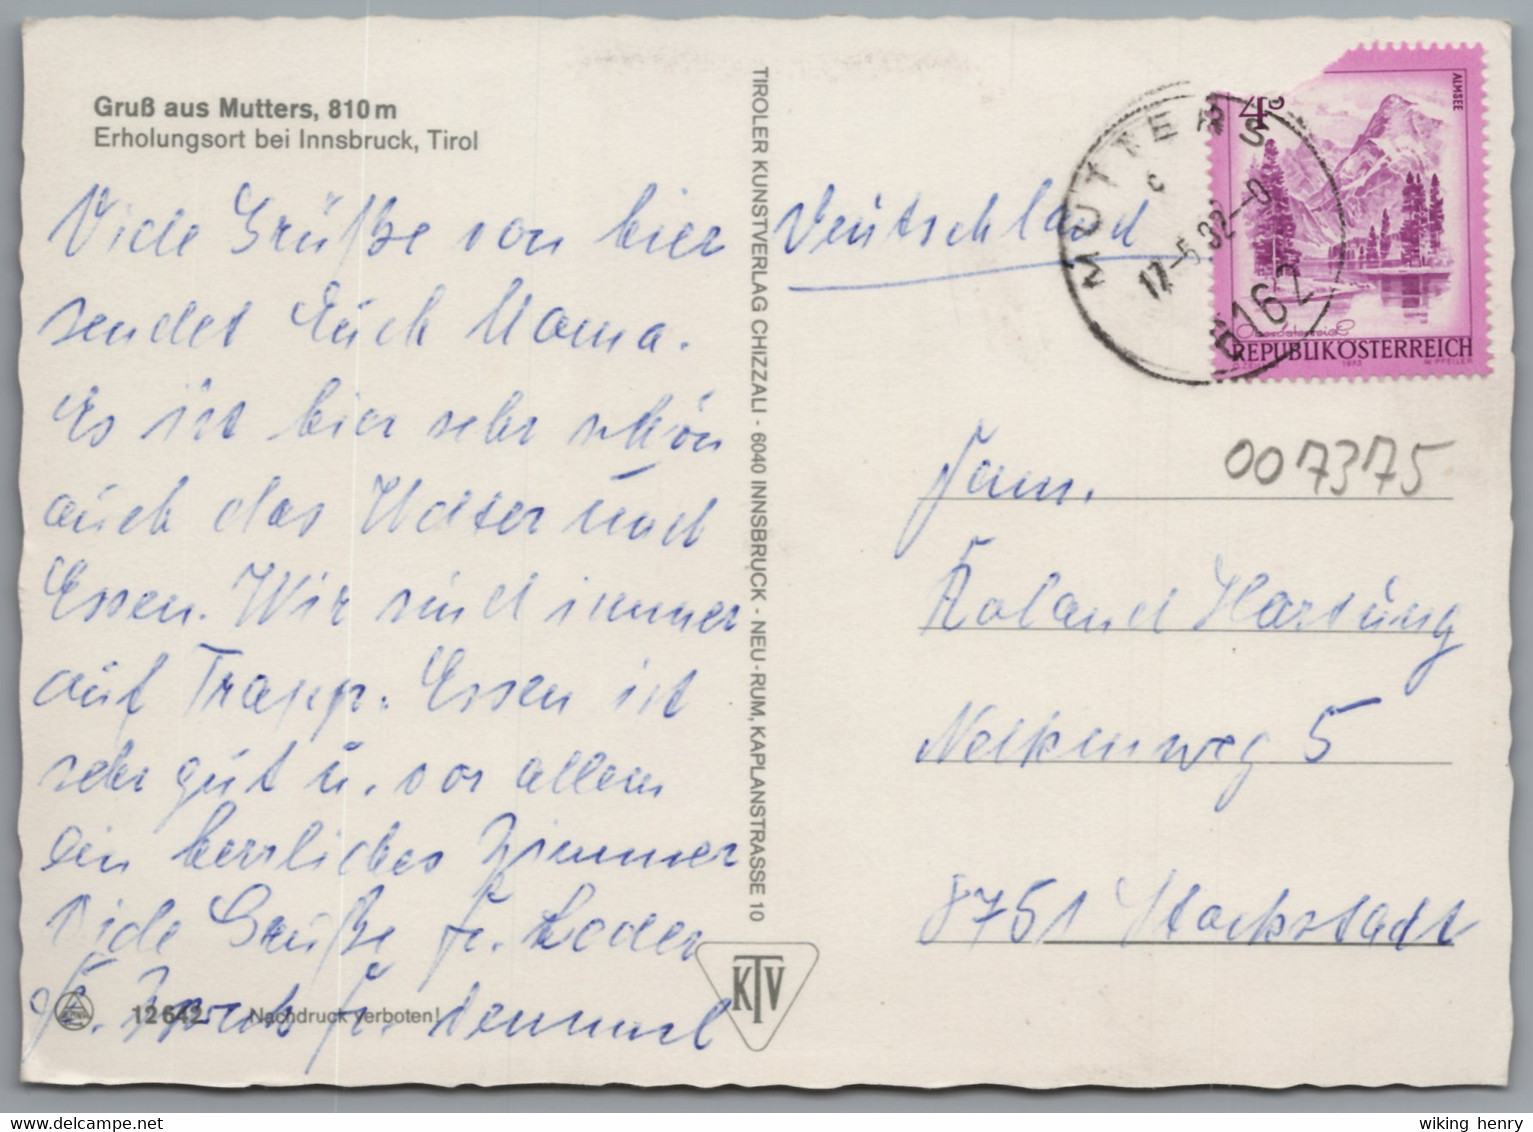 Gruß aus Mutters, 810 m
Erholungsort bei Innsbruck, Tirol
Viele Grüße von hier
sendet Euch Mama.
Es ist hier sehr schön
auch das Wetter und
Essen. Wir sind immer
auf Trapp. Essen ist
sehr gut u. vor allem
ein herrliches Zimmer
Viele Grüße Fr.
Fr. Fr.
12642 Nachdruck verboten!
TIROLER KUNSTVERLAG CHIZZALI - 6040 INNSBRUCK - NEU-RUM, KAPLANSTRASSE 10
KTV
Deutschland
MUTTERS
c
17.-5.82--0
6162
4 S
ALMSEE
Oberösterreich
REPUBLIK ÖSTERREICH
007375
Fam.
Roland Hartung
Nelkenweg 5
8751 Stockstadt
wiking henry